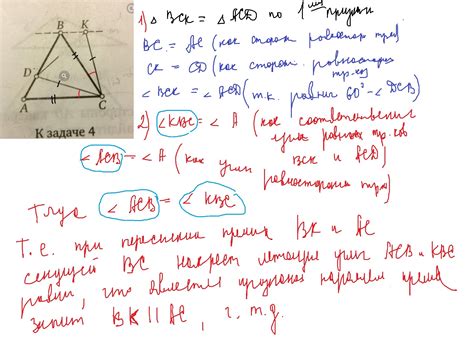 B K
D
A C
К задаче 4
1) △ BCK = △ ACD по 1 му признаку
BC = AC (как стороны равностор треу)
CK = CD (как сторон. равностороннего
тр-ка)
∠ BCK = ∠ ACD (т.к. равны 60° - ∠ DCB)
2) ∠KBC = ∠ A (как соответственные
углы равных тр-ков
BCK и ACD)
∠ ACB = ∠ A (как углы
равностороннего тр-ка)
Тогда ∠ ACB = ∠ KBC
Т.е. при пересечении прямых BK и AC
секущей BC накрест лежащие углы ACB и KBC
равны, что является признаком параллели прямых
значит BK || AC, ч.т.д.